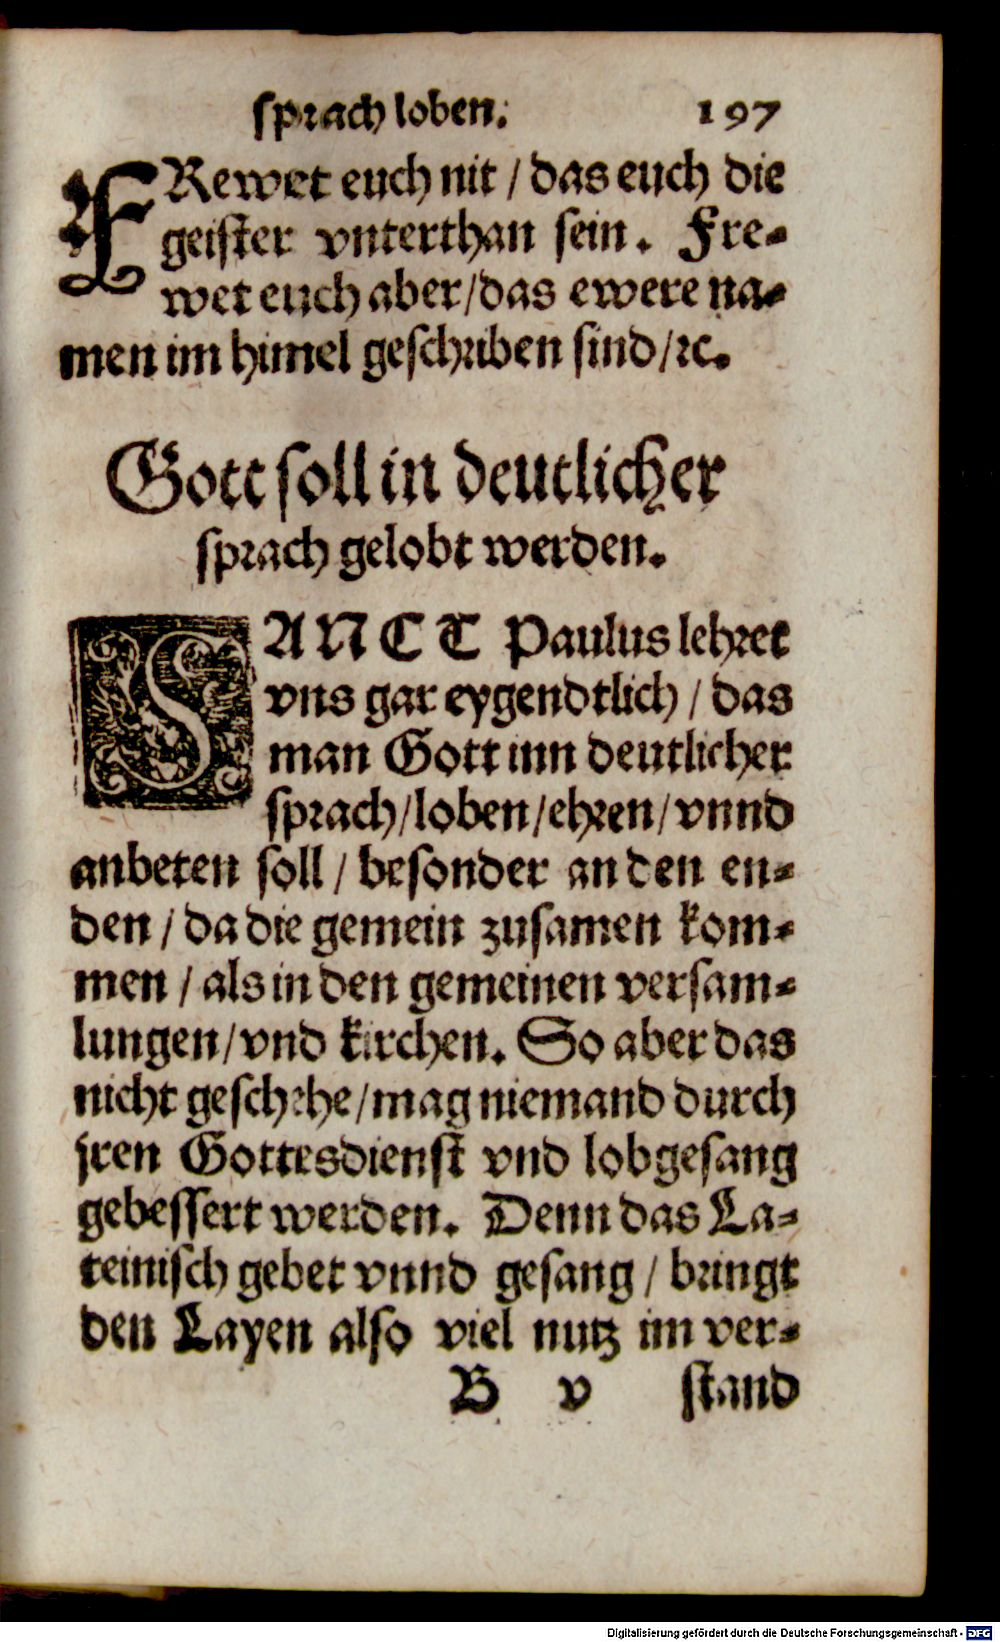 sprach loben. 197
FRewet euch nit / das euch die
geister vnterthan sein. Fre-
wet euch aber / das ewere na-
men im himel geschriben sind / ꝛc.
Gott soll in deutlicher
sprach gelobt werden.
SANCT Paulus lehret
vns gar eygendtlich / das
man Gott inn deutlicher
sprach / loben / ehren / vnnd
anbeten soll / besonder an den en-
den / da die gemein zusamen kom-
men / als in den gemeinen versam-
lungen / vnd kirchen. So aber das
nicht geschehe / mag niemand durch
jren Gottesdienst vnd lobgesang
gebessert werden. Denn das La-
teinisch gebet vnnd gesang / bringt
den Layen also viel nutz im ver-
B v stand
Digitalisierung gefördert durch die Deutsche Forschungsgemeinschaft - DFG